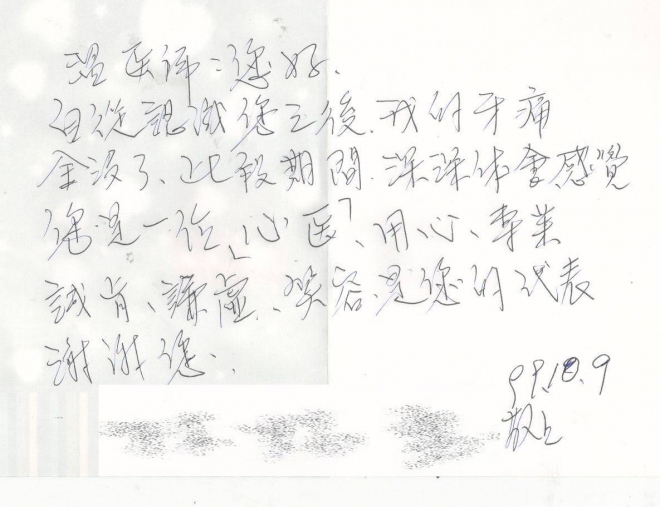 溫医师:您好.
自從認識您之後.我的牙痛
全沒了、此段期間.深深体會感覺
您是一位「心医」、用心、專業
誠肯、謙虛、笑容.是您的代表
謝謝您.
99.10.9
敬上